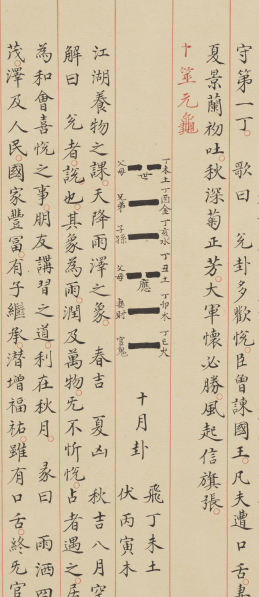 守第一丁 歌曰 兌卦多歡悅臣曾諫國王凡夫遭口舌
夏景蘭初吐秋深菊正芳大軍懷必勝風起信旗張
卜筮元龜
丁未土 丁酉金 丁亥水 丁丑土 丁卯木 丁巳火
世 應
父母 兄弟 子孫 父母 妻財 官鬼
十月卦
飛丁未土
伏丙寅木
江湖養物之課天降雨澤之象 春吉 夏凶 秋吉八月空
解曰 兌者說也其象為雨潤及萬物无不忻悅占者遇之
為和會喜悅之事朋友講習之道利在秋月 彖曰 雨洒四
茂澤及人民國家豐富有子繼承潜增福祐雖有口舌終无官